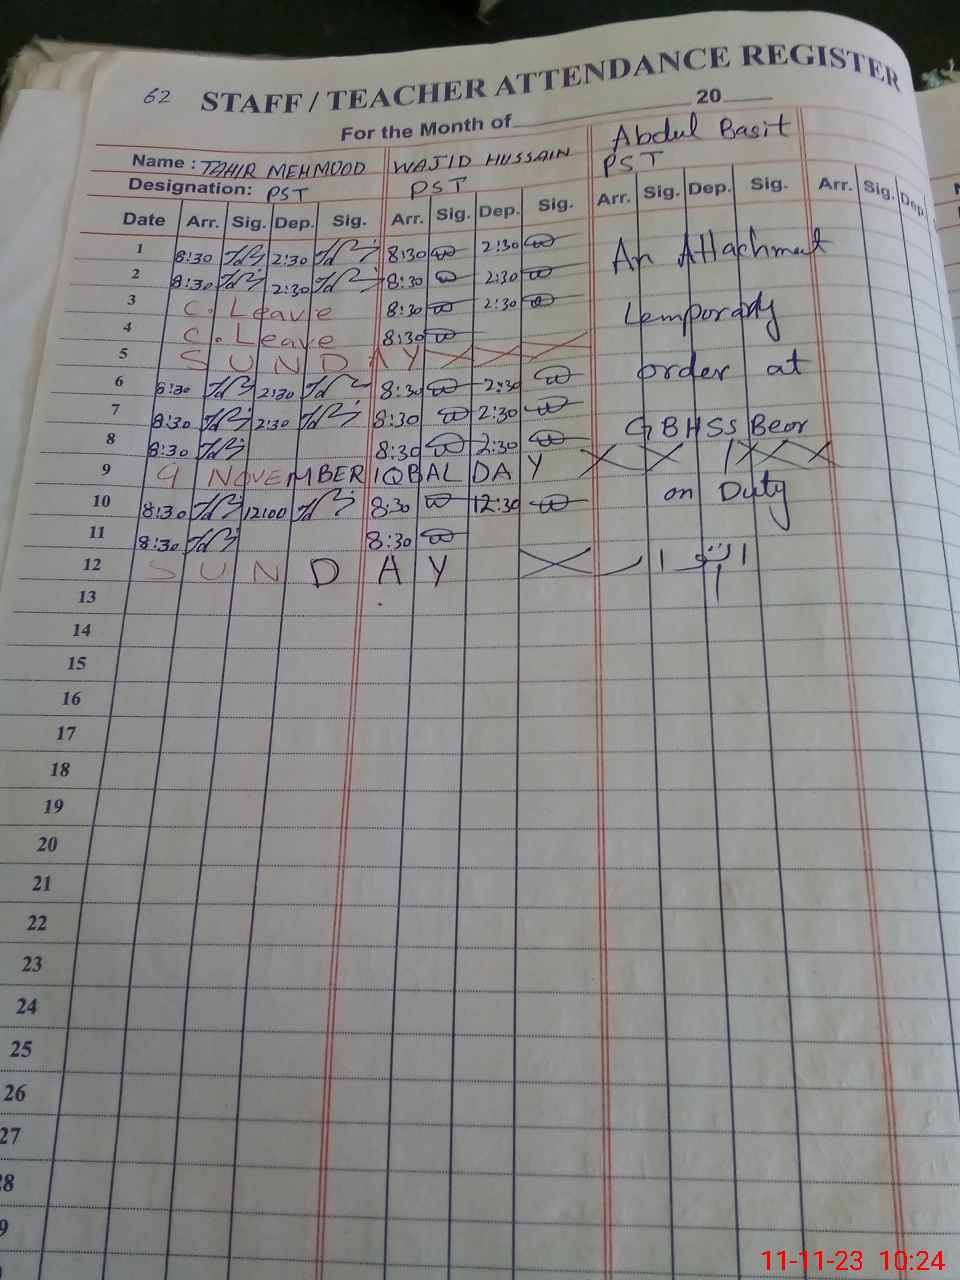 62 STAFF / TEACHER ATTENDANCE REGISTER
For the Month of 20
Name : TAHIR MEHMOOD WAJID HUSSAIN Abdul Basit
Designation: PST PST PST
Date Arr. Sig. Dep. Sig. Arr. Sig. Dep. Sig. Arr. Sig. Dep. Sig. Arr. Sig. Dep.
1 8:30 2:30 8:30 2:30 An Attachmeut
2 8:30 2:30 8:30 2:30
3 C. Leave 8:30 2:30 temporady
4 C. Leave 8:30
5 SUNDAY order at
6 8:30 2:30 8:30 2:30
7 8:30 2:30 8:30 2:30
8 8:30 8:30 2:30 GBHSS Beor
9 9 NOVEMBER IQBAL DAY
10 8:30 12:00 8:30 12:30 on Duty
11 8:30 8:30
12 SUNDAY اتوار
13
14
15
16
17
18
19
20
21
22
23
24
25
26
27
28
11-11-23 10:24